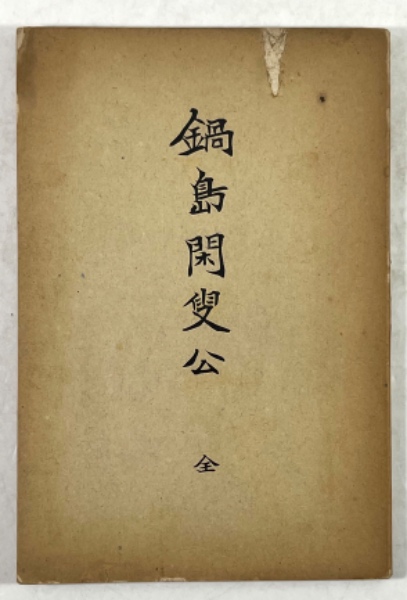 鍋島閑叟公
全